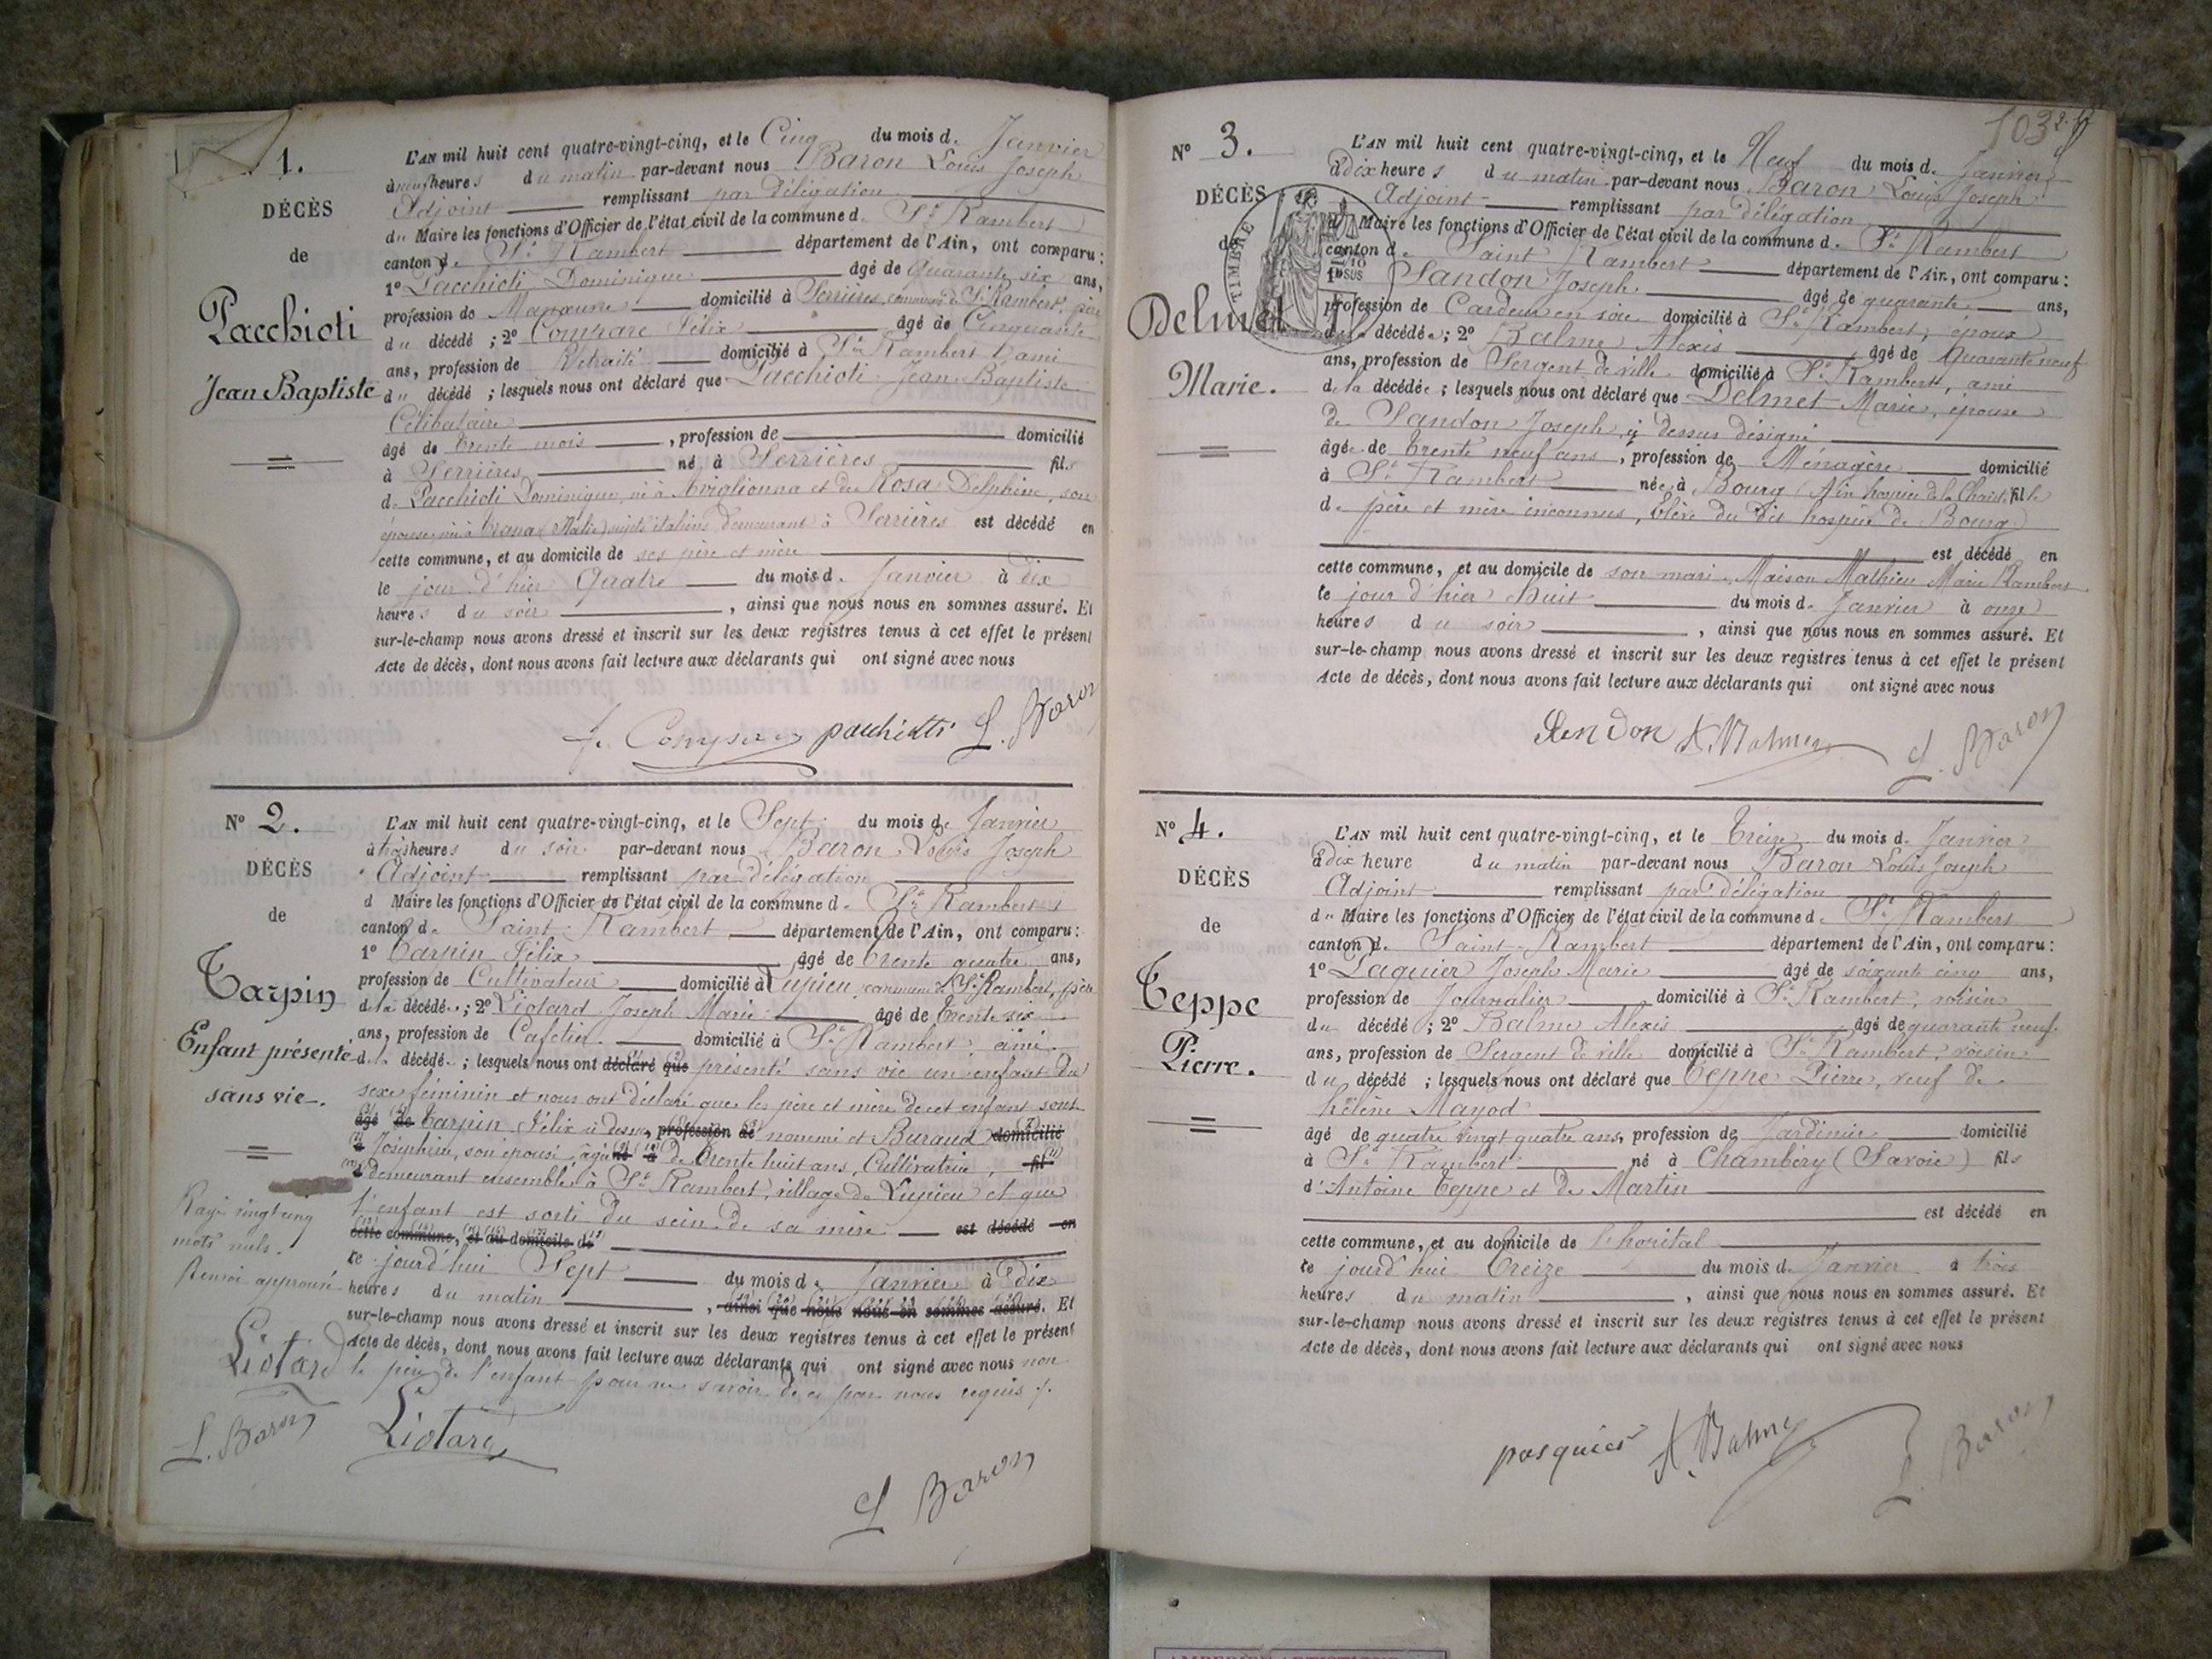 1.
DÉCÈS
de
Pacchioti
Jean Baptiste
L'AN mil huit cent quatre-vingt-cinq, et le Cinq du mois d. Janvier
à neuf heures du matin par-devant nous Baron Louis Joseph
Adjoint remplissant par délégation
du Maire les fonctions d'Officier de l'état civil de la commune d. St Rambert
canton d. St Rambert département de l'Ain, ont comparu :
1° Pacchioti Dominique âgé de quarante six ans,
profession de domicilié à Serrières, commune de St Rambert, père
du décédé ; 2° Compare Félix âgé de Cinquante
ans, profession de Retraité domicilié à St Rambert, ami
du décédé ; lesquels nous ont déclaré que Pacchioti Jean Baptiste
Célibataire
âgé de trente mois, profession de domicilié
à Serrières né à Serrières fils
d. Pacchioti Dominique, né à Aviglionna et de Rosa Delphine, son
épouse née à (Italie) sujets italiens demeurant à Serrières est décédé en
cette commune, et au domicile de ses père et mère
le jour d'hier Quatre du mois d. Janvier à dix
heures du soir, ainsi que nous nous en sommes assuré. Et
sur-le-champ nous avons dressé et inscrit sur les deux registres tenus à cet effet le présent
Acte de décès, dont nous avons fait lecture aux déclarants qui ont signé avec nous
pacchiotti L. Baron
N° 2.
DÉCÈS
de
Tarpin
Enfant présenté
sans vie.
L'AN mil huit cent quatre-vingt-cinq, et le Sept du mois d. Janvier
à trois heures du soir par-devant nous Baron Louis Joseph
Adjoint remplissant par délégation
d Maire les fonctions d'Officier de l'état civil de la commune d. St Rambert
canton d. Saint Rambert département de l'Ain, ont comparu :
1° Tarpin Félix âgé de trente quatre ans,
profession de Cultivateur domicilié à Lupieu, commune de St Rambert, père
de la décédé. ; 2° Liotard Joseph Marie âgé de trente six
ans, profession de Cafetier domicilié à St Rambert, ami
d. la décédé. ; lesquels nous ont déclaré que présenté sans vie un enfant du
sexe féminin et nous ont déclaré que les père et mère de cet enfant sont
âgé de Tarpin Félix ci dessus, profession de nommé et Buraud domicilié
à Joséphine, son épouse, âgée de trente huit ans, Cultivatrice, fil
demeurant ensemble à St Rambert, village de Lupieu et que
l'enfant est sorti du sein de sa mère est décédé en
cette commune, et au domicile de
le jourd'hui Sept du mois d. Janvier à dix
heures du matin, ainsi que nous nous en sommes assuré. Et
sur-le-champ nous avons dressé et inscrit sur les deux registres tenus à cet effet le présent
Acte de décès, dont nous avons fait lecture aux déclarants qui ont signé avec nous non
le père de l'enfant pour ne savoir de ce par nous requis ./.
Rayé vingt cinq
mots nuls.
Renvoi approuvé
Liotard
L. Baron
Liotard
L Baron
103
N° 3.
DÉCÈS
de
Delmet
Marie.
TIMBRE
L'AN mil huit cent quatre-vingt-cinq, et le Neuf du mois d. Janvier
à dix heures du matin par-devant nous Baron Louis Joseph
Adjoint remplissant par délégation
du Maire les fonctions d'Officier de l'état civil de la commune d. St Rambert
canton d. Saint Rambert département de l'Ain, ont comparu :
1° Sandon Joseph âgé de quarante ans,
profession de Cardeur en soie domicilié à St Rambert, époux
de la décédée ; 2° Balme Alexis âgé de Quarante neuf
ans, profession de Sergent de ville domicilié à St Rambert, ami
de la décédée ; lesquels nous ont déclaré que Delmet Marie, épouse
de Sandon Joseph, ci dessus désigné
âgée de trente neuf ans, profession de Ménagère domicilié
à St Rambert née à Bourg (Ain hospice de la Charité) fille
d. père et mère inconnus, élève du dit hospice de Bourg
est décédé en
cette commune, et au domicile de son mari, Maison Mathieu Marie Rambert
le jour d'hier Huit du mois d. Janvier à onze
heures du soir, ainsi que nous nous en sommes assuré. Et
sur-le-champ nous avons dressé et inscrit sur les deux registres tenus à cet effet le présent
Acte de décès, dont nous avons fait lecture aux déclarants qui ont signé avec nous
Sandon A. Balme L. Baron
N° 4.
DÉCÈS
de
Teppe
Pierre.
L'AN mil huit cent quatre-vingt-cinq, et le Treize du mois d. Janvier
à dix heure du matin par-devant nous Baron Louis Joseph
Adjoint remplissant par délégation
du Maire les fonctions d'Officier de l'état civil de la commune d. St Rambert
canton d. Saint-Rambert département de l'Ain, ont comparu :
1° Paquier Joseph Marie âgé de soixante cinq ans,
profession de Journalier domicilié à St Rambert, voisin
du décédé ; 2° Balme Alexis âgé de quarante neuf
ans, profession de Sergent de ville domicilié à St Rambert, voisin
du décédé ; lesquels nous ont déclaré que Teppe Pierre, veuf de
hélène Mayod
âgé de quatre vingt quatre ans, profession de Jardinier domicilié
à St Rambert né à Chambéry (Savoie) fils
d'Antoine Teppe et de Martin
est décédé en
cette commune, et au domicile de l'hopital
le jourd'hui Treize du mois d. Janvier à trois
heures du matin, ainsi que nous nous en sommes assuré. Et
sur-le-champ nous avons dressé et inscrit sur les deux registres tenus à cet effet le présent
Acte de décès, dont nous avons fait lecture aux déclarants qui ont signé avec nous
pasquier A. Balme L. Baron